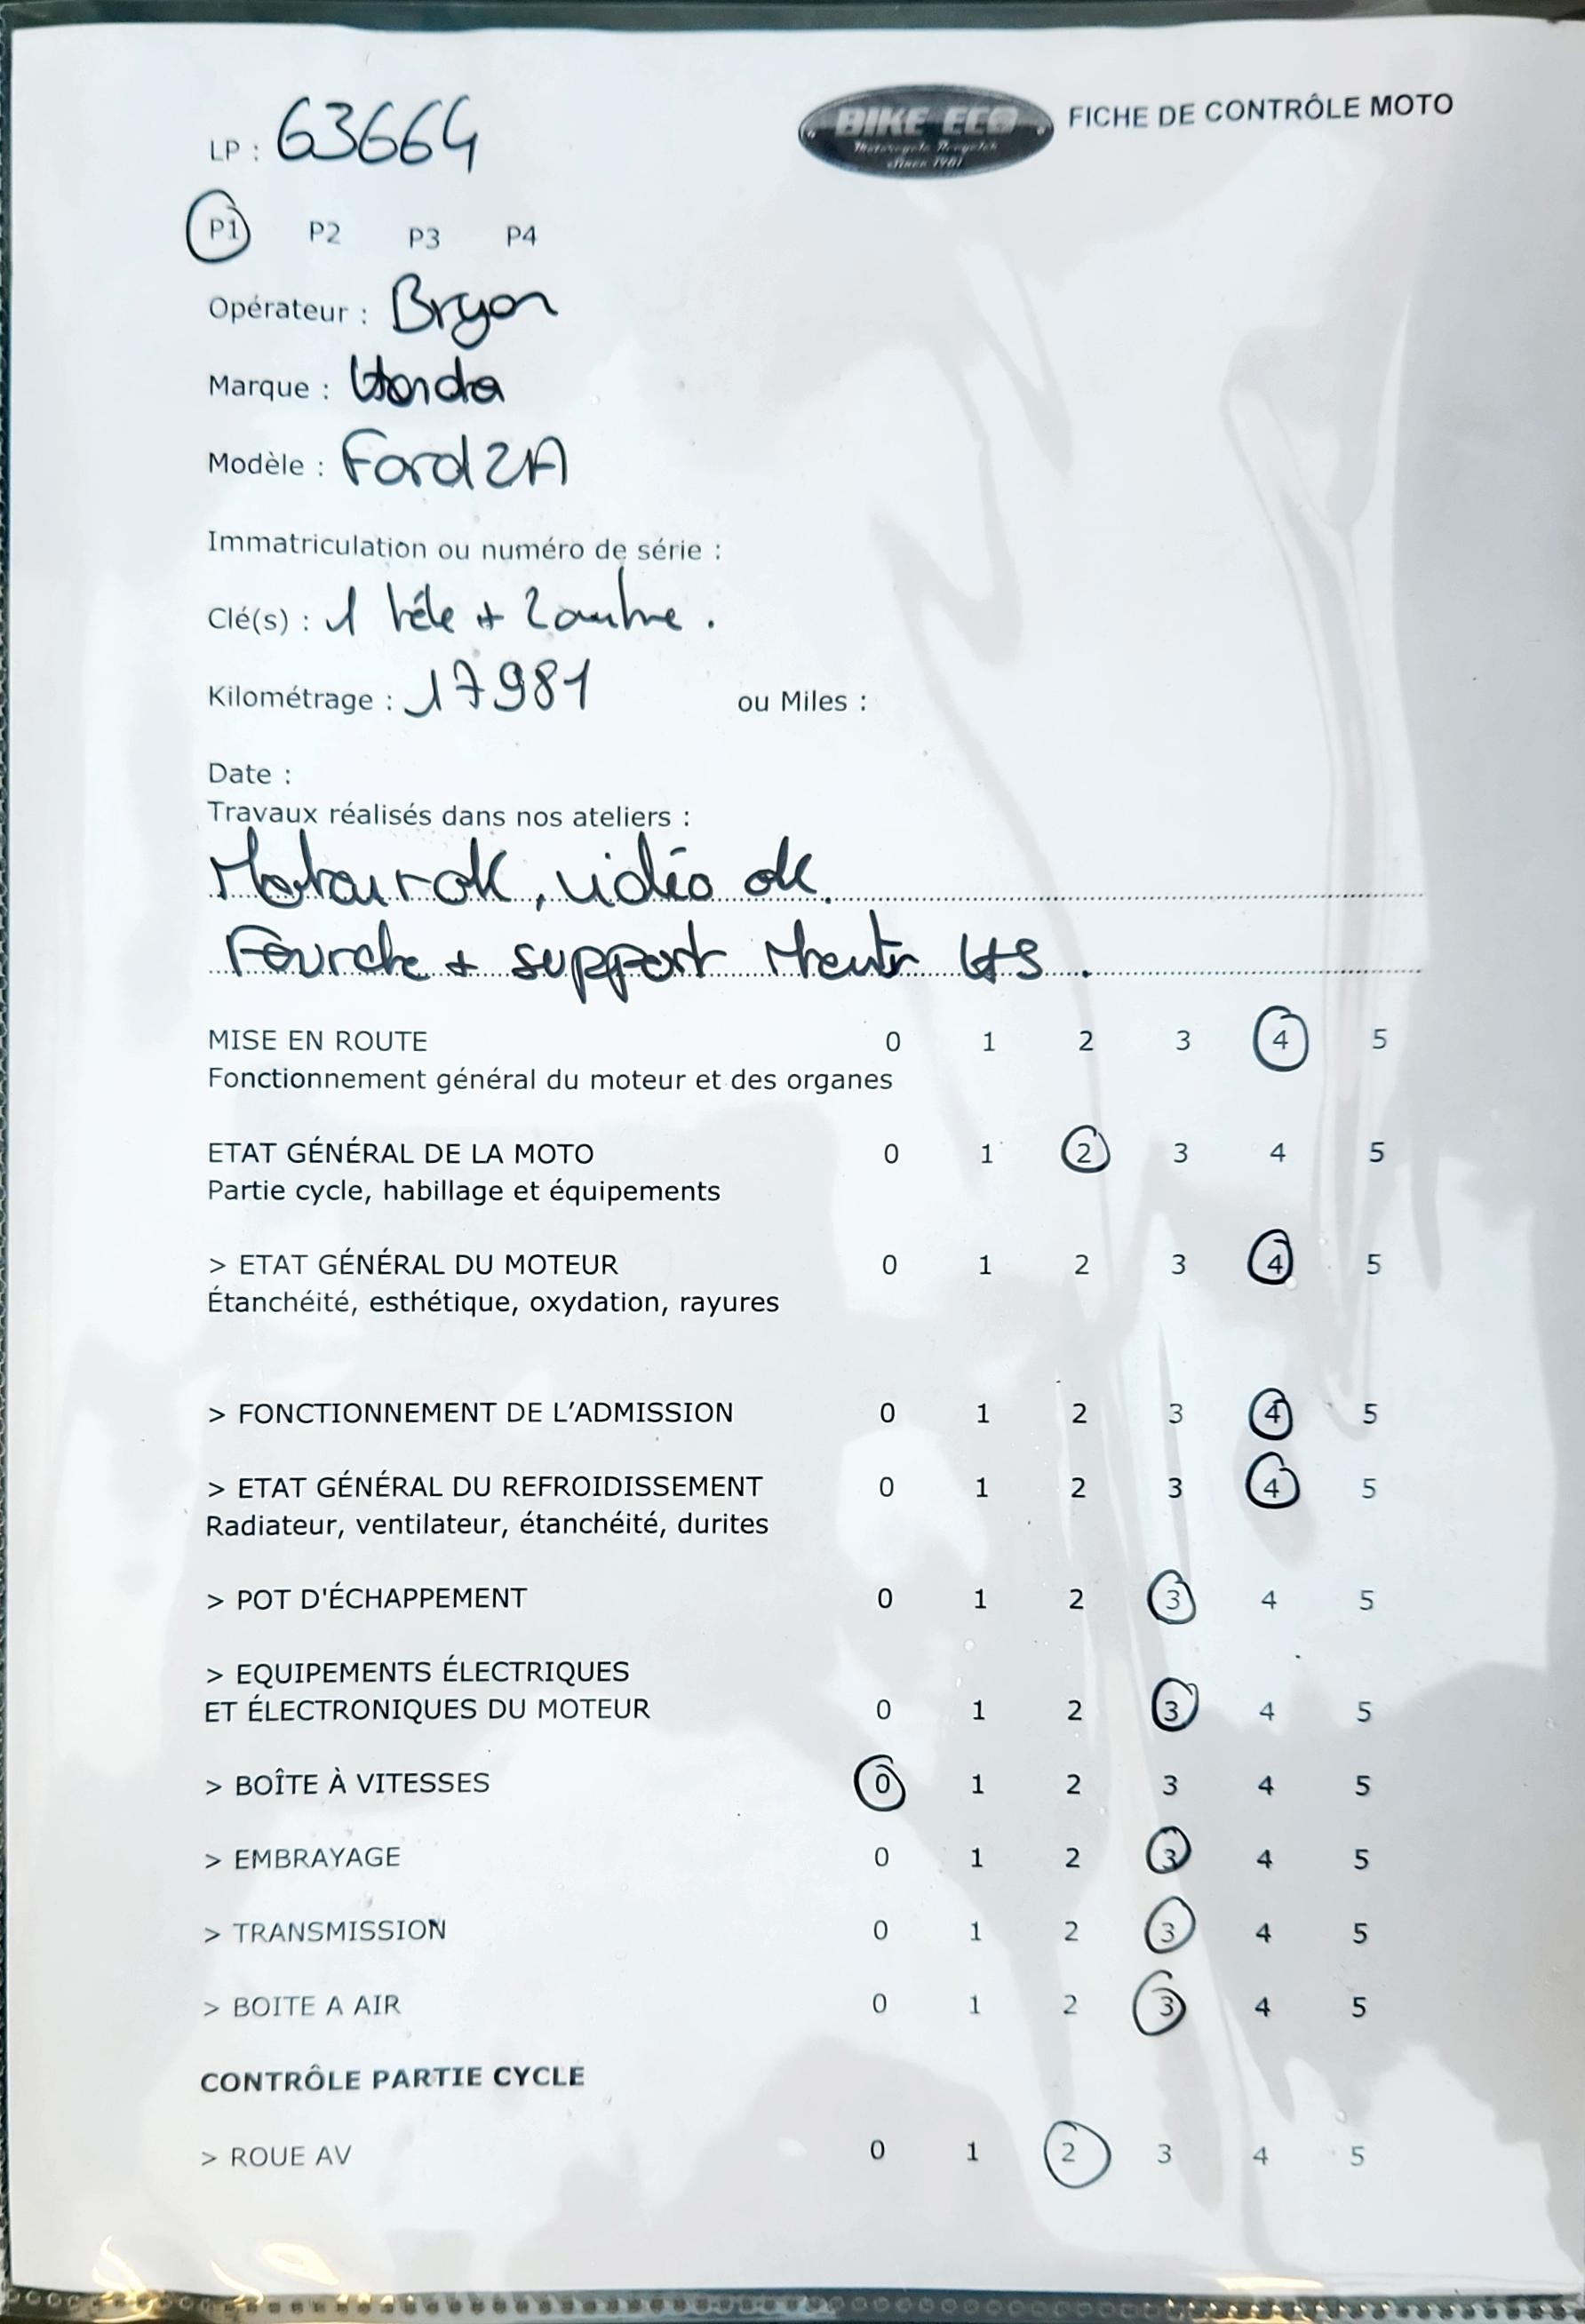 LP : 63664
BIKE ECO
Motorcycle Recycler
Since 1981
FICHE DE CONTRÔLE MOTO
P1 P2 P3 P4
Opérateur : Bryan
Marque : Honda
Modèle :
Immatriculation ou numéro de série :
Clé(s) : 1 +
Kilométrage : 17981 ou Miles :
Date :
Travaux réalisés dans nos ateliers :
Moteur ok, vidéo ok
Fourche + support HS.
MISE EN ROUTE 0 1 2 3 4 5
Fonctionnement général du moteur et des organes
ETAT GÉNÉRAL DE LA MOTO 0 1 2 3 4 5
Partie cycle, habillage et équipements
> ETAT GÉNÉRAL DU MOTEUR 0 1 2 3 4 5
Étanchéité, esthétique, oxydation, rayures
> FONCTIONNEMENT DE L'ADMISSION 0 1 2 3 4 5
> ETAT GÉNÉRAL DU REFROIDISSEMENT 0 1 2 3 4 5
Radiateur, ventilateur, étanchéité, durites
> POT D'ÉCHAPPEMENT 0 1 2 3 4 5
> EQUIPEMENTS ÉLECTRIQUES
ET ÉLECTRONIQUES DU MOTEUR 0 1 2 3 4 5
> BOÎTE À VITESSES 0 1 2 3 4 5
> EMBRAYAGE 0 1 2 3 4 5
> TRANSMISSION 0 1 2 3 4 5
> BOITE A AIR 0 1 2 3 4 5
CONTRÔLE PARTIE CYCLE
> ROUE AV 0 1 2 3 4 5